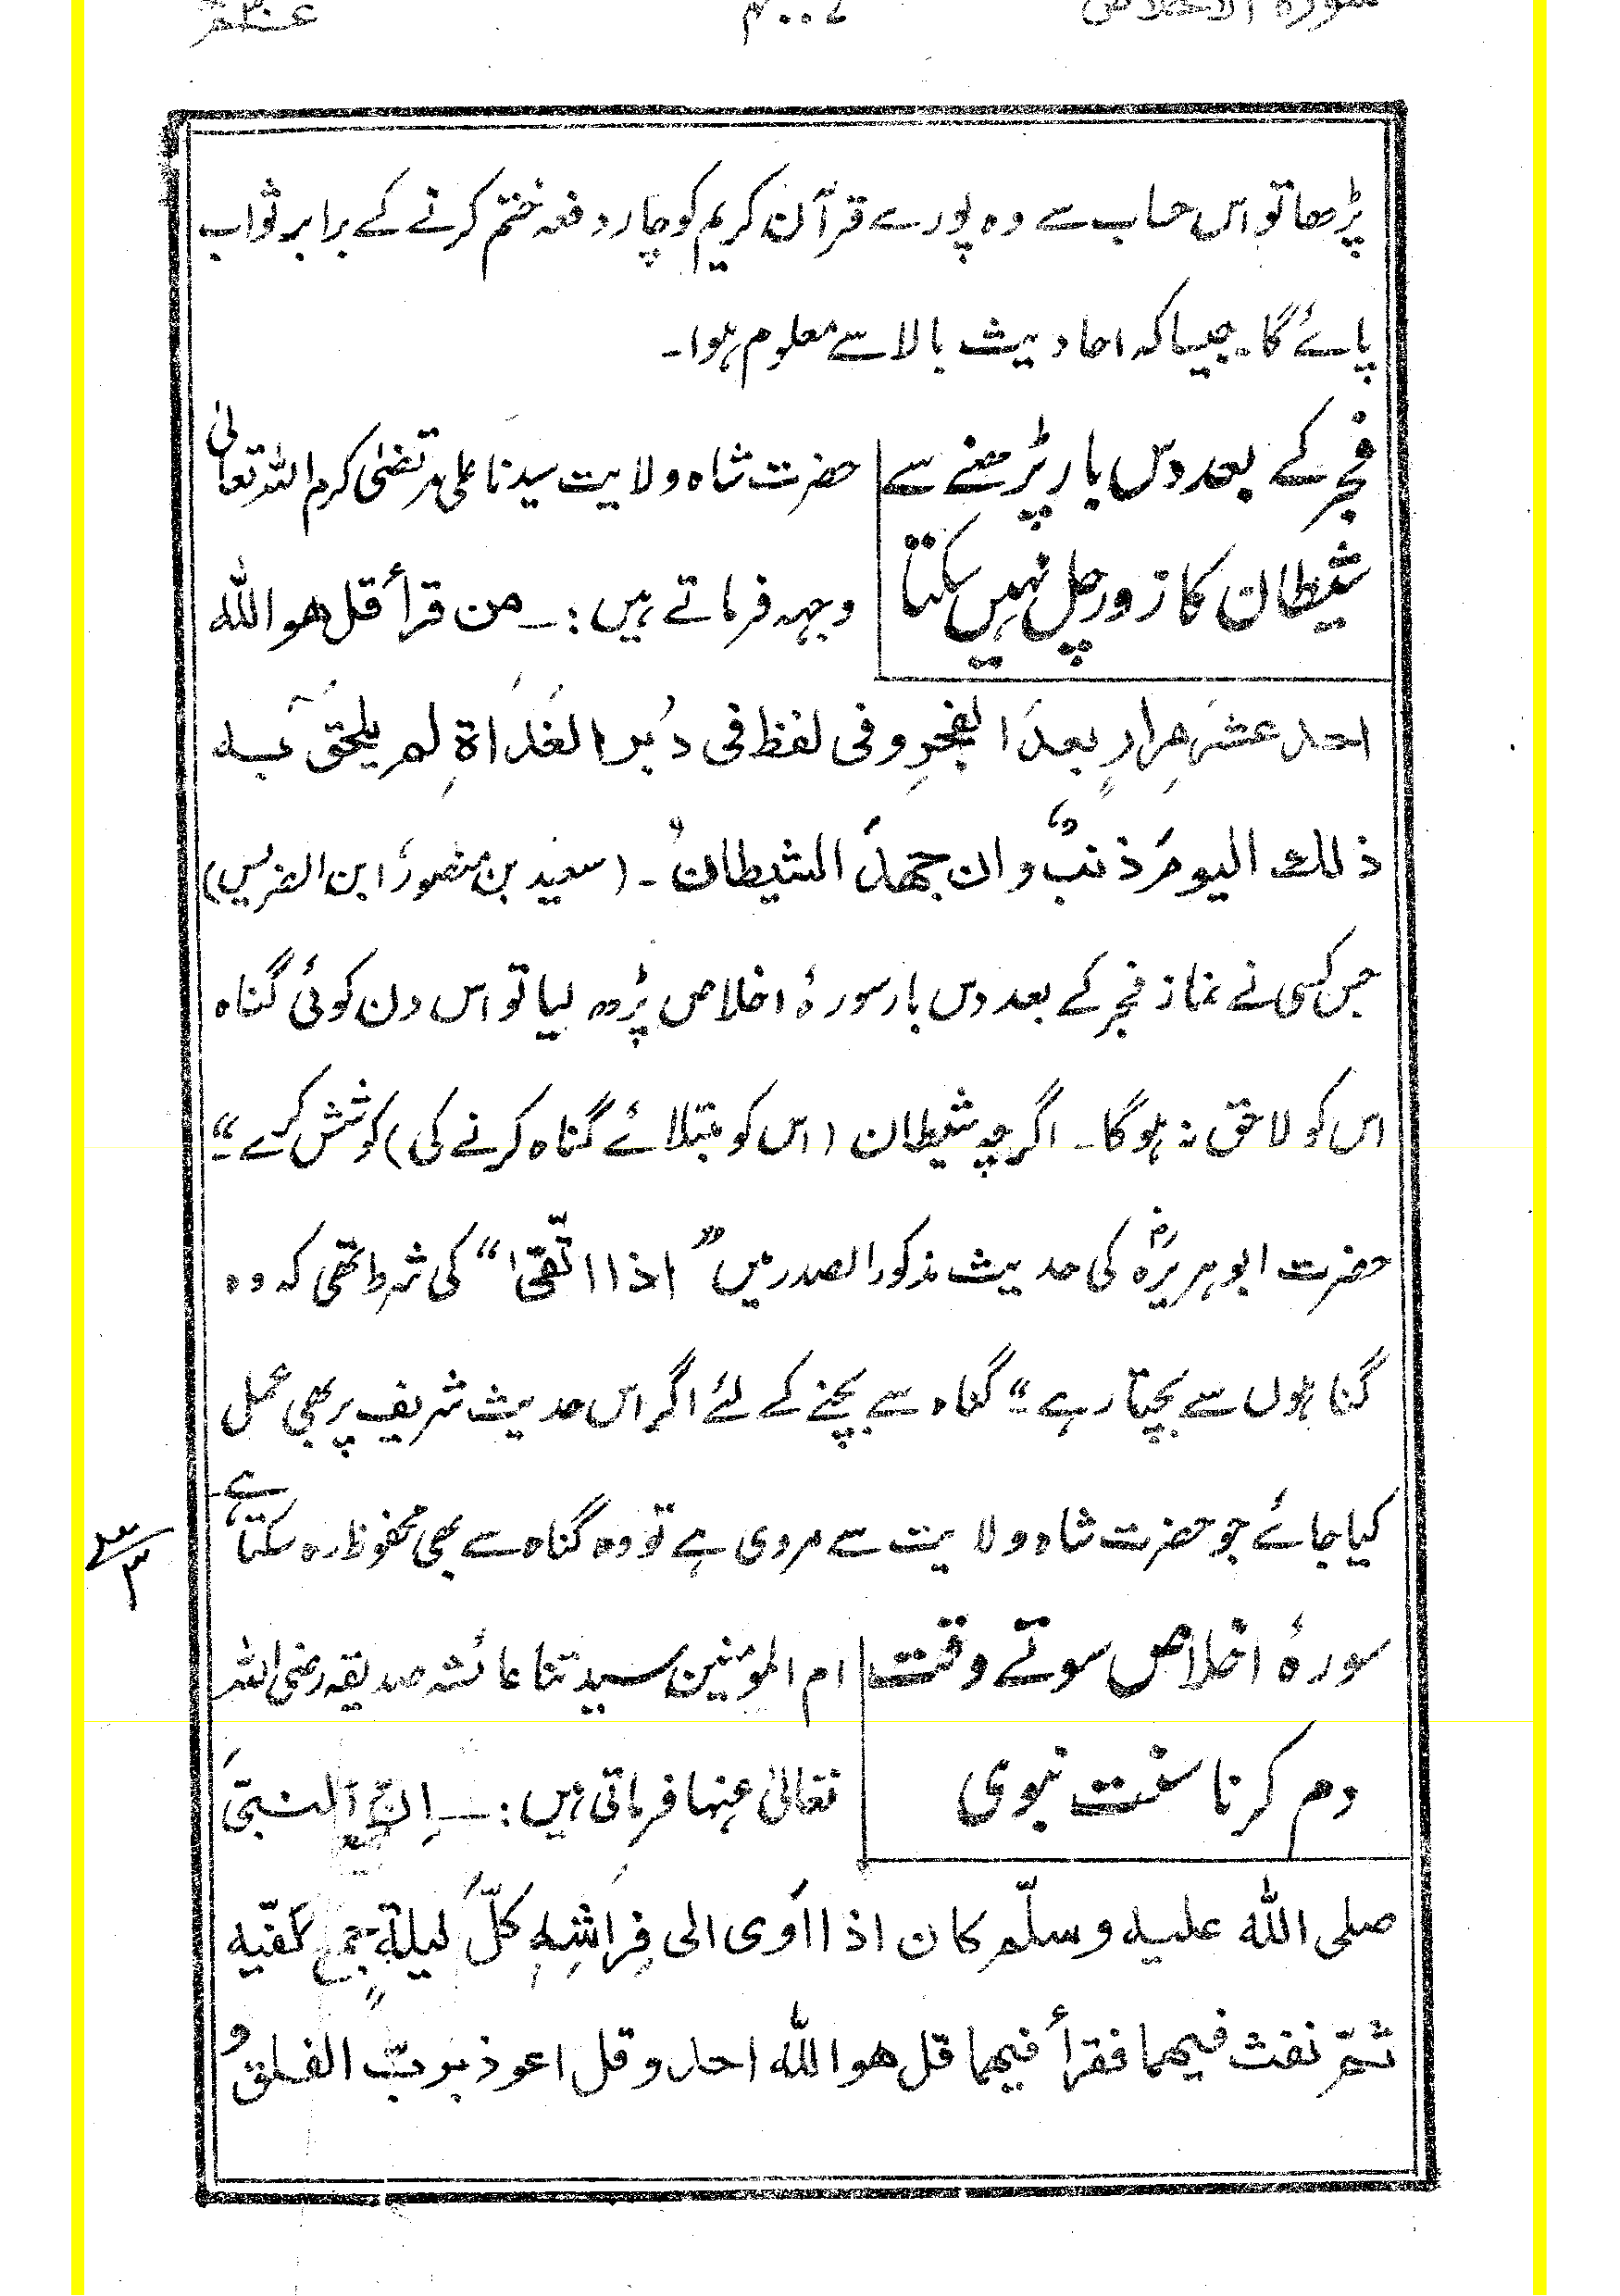 سورۃ الاخلاص
پڑھا تو اس حساب سے وہ پورے قرآن کریم کو چار دفعہ ختم کرنے کے برابر ثواب
پائے گا۔ جیسا کہ احادیث بالا سے معلوم ہوا۔
فجر کے بعد دس بار پڑھنے سے
شیطان کا زور چل نہیں سکتا
حضرت شاہ ولایت سیدنا علی مرتضیٰ کرم اللہ تعالیٰ
وجہہ فرماتے ہیں :ــ من قرأ قل هو الله
احد عشرَ مِرارٍ بعدَ الفجرِ وفی لفظ فی دُبر الغَداۃِ لم یلحق بہ
ذلك الیومَ ذنبٌ وان جھدَ الشیطانُ ۔ (سعید بن منصور، ابن الضریس)
جس کسی نے نماز فجر کے بعد دس بار سورۂ اخلاص پڑھ لیا تو اس دن کوئی گناہ
اس کو لاحق نہ ہوگا۔ اگرچہ شیطان (اس کو مبتلائے گناہ کرنے کی) کوشش کرے“۔
حضرت ابوہریرہؓ کی حدیث مذکور الصدر میں ”اذا اتّقیٰ“ کی شرط تھی کہ وہ
گناہوں سے بچتا رہے“۔ گناہ سے بچنے کے لئے اگر اس حدیث شریف پر بھی عمل
کیا جائے جو حضرت شاہ ولایت سے مروی ہے تو وہ گناہ سے بھی محفوظ رہ سکتا ہے۔
۳
سورۂ اخلاص سوتے وقت
دم کرنا سنت نبوی
ام المومنین سیدتنا عائشہ صدیقہ رضی اللہ
تعالیٰ عنہا فرماتی ہیں :ــ اِنّ النبیَّ
صلی الله علیہ وسلّم کان اذا اَوی الی فِراشِہٖ کلَّ لیلۃٍ جمع کفّیہ
ثمّ نفث فیھما فقرأ فیھما قل هو الله احد وقل اعوذ بربّ الفلق و